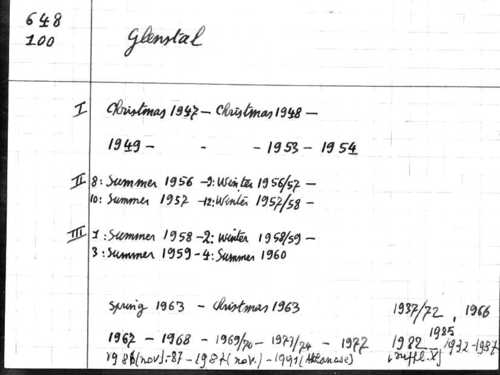 648
100
Glenstal
I Christmas 1947 - Christmas 1948 -
1949 - - - 1953 - 1954
II 8: Summer 1956 - 9: Winter 1956/57 -
10: Summer 1957 - 12: Winter 1957/58 -
III 1: Summer 1958 - 2: Winter 1958/59 -
3: Summer 1959 - 4: Summer 1960
Spring 1963 - Christmas 1963
1937/72, 1966
1967 - 1968 - 1969/70 - 1973/74 - 1977
1982 - 1985
1986 (nov) - 87 - 1987 (nov.) - 1991